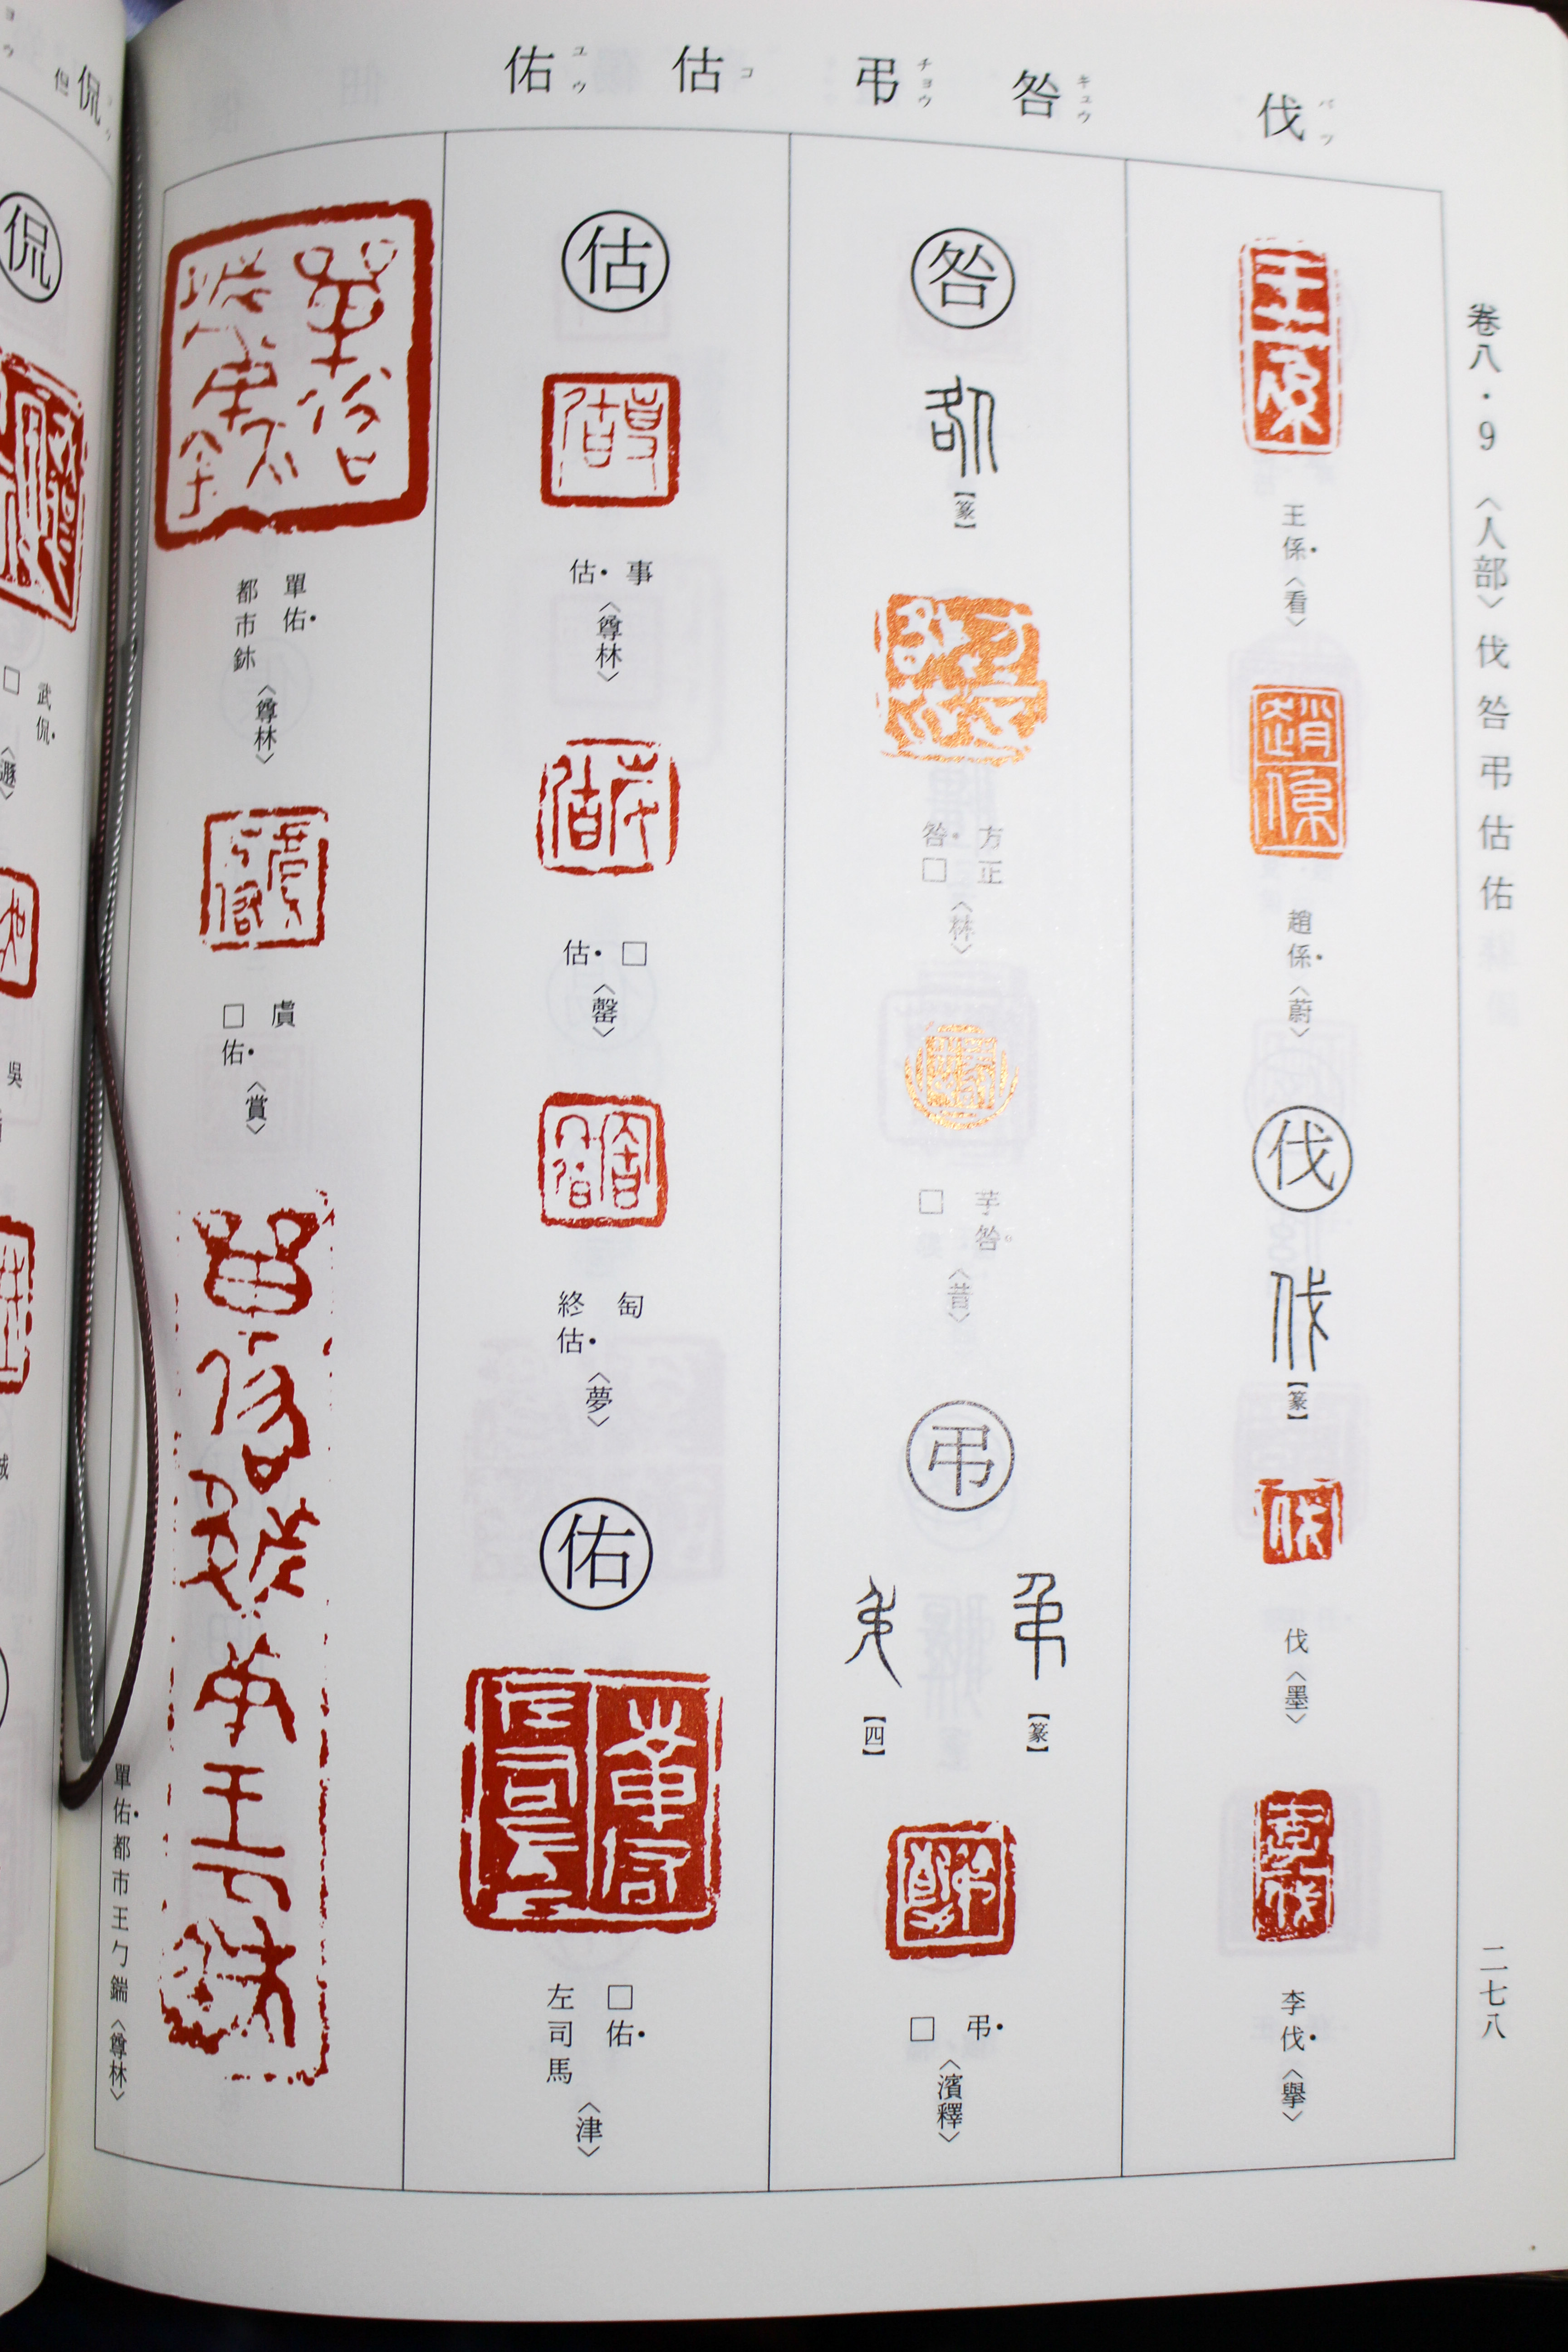 卷八・9 〈人部〉 伐 咎 弔 估 佑
二七八
伐 バツ
咎 キュウ
弔 チョウ
估 コ
佑 ユウ
王係〈看〉
趙係〈蔚〉
伐
【篆】
伐〈墨〉
李伐〈擧〉
咎
【篆】
方正
咎□〈林〉
芋咎
□〈昔〉
弔
【篆】
【四】
弔
□〈濱釋〉
估
事
估〈尊林〉
□
估〈罄〉
匋
終估〈夢〉
佑
□佑
左司馬〈津〉
單佑
都市鉥〈尊林〉
虞
□佑〈賞〉
單佑都市王勹鍴〈尊林〉
侃
但
侃
武侃
□
吳